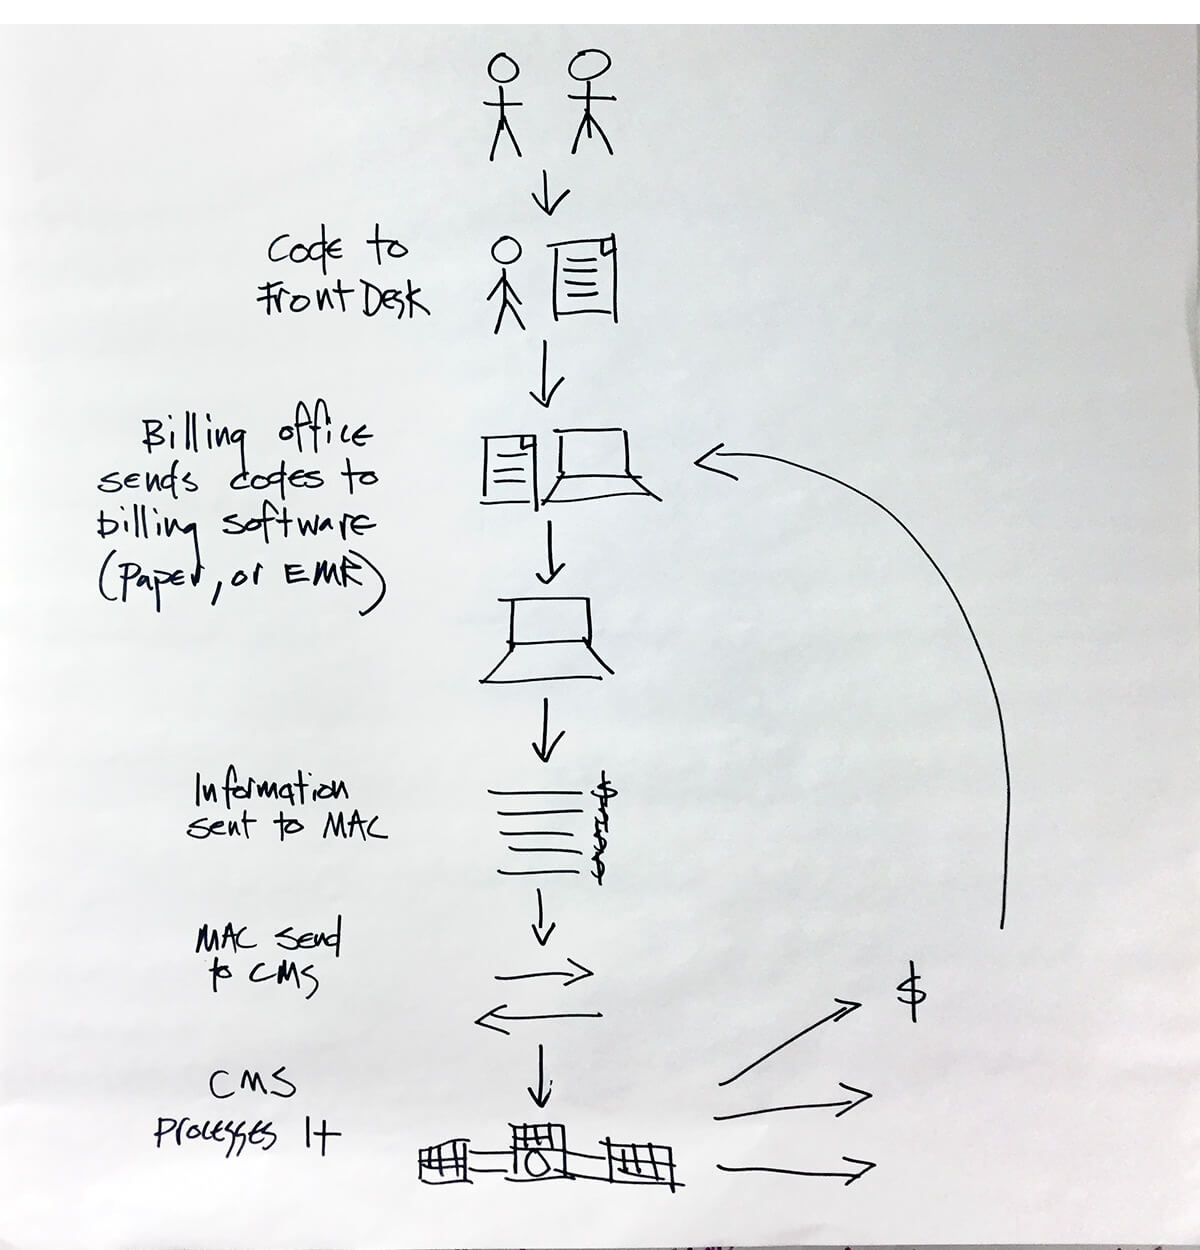 Code to
Front Desk
Billing office
sends codes to
billing software
(Paper, or EMR)
Information
sent to MAC
$
MAC send
to CMS
$
CMS
Processes It